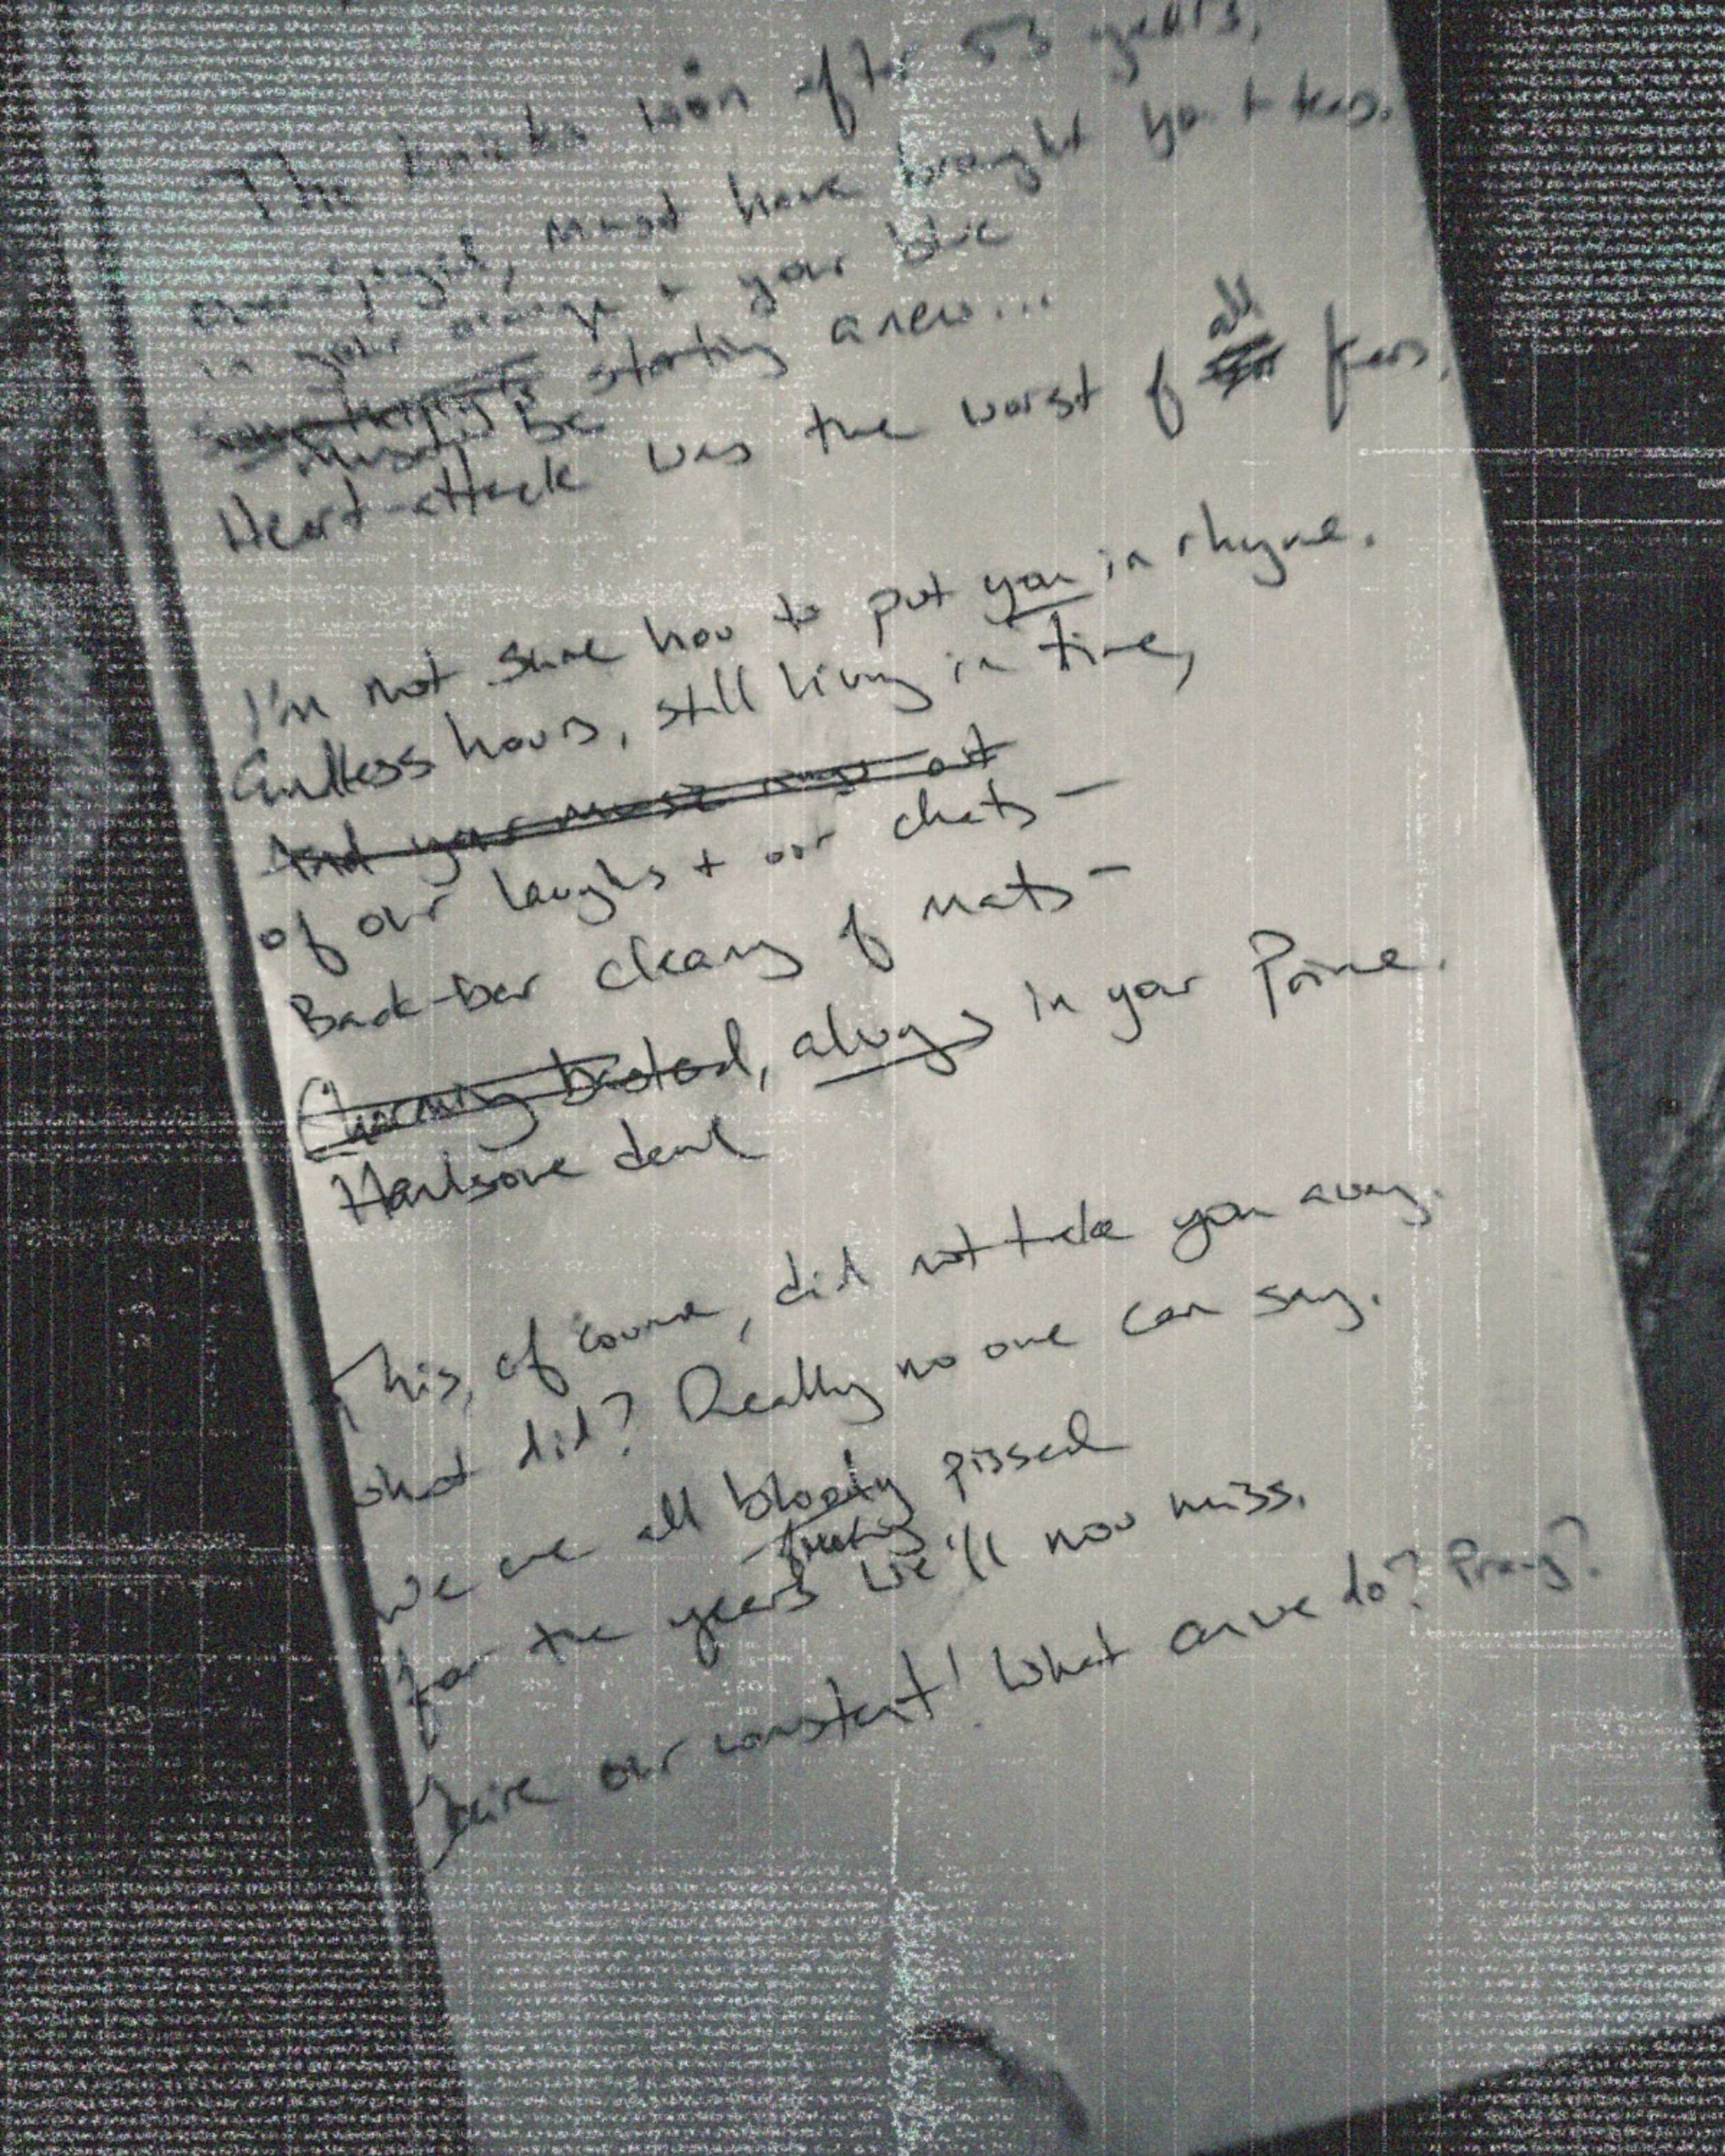 The Knicks won after 53 years,
must have brought you to tears.
in your orange + your blue
starting anew...
must be
Heart-attack was the worst of all fears.
I'm not sure how to put you in rhyme.
Endless hours, still living in time,
And your music rings out
of our laughs + our chats -
Back-bar cleany of mats -
Charming bastard, always in your Prime.
Handsome devil
This, of course, did not take you away.
what did? Really no one can say.
We are all bloody pissed
for the years we'll now miss.
our constant! What can we do? Pray?